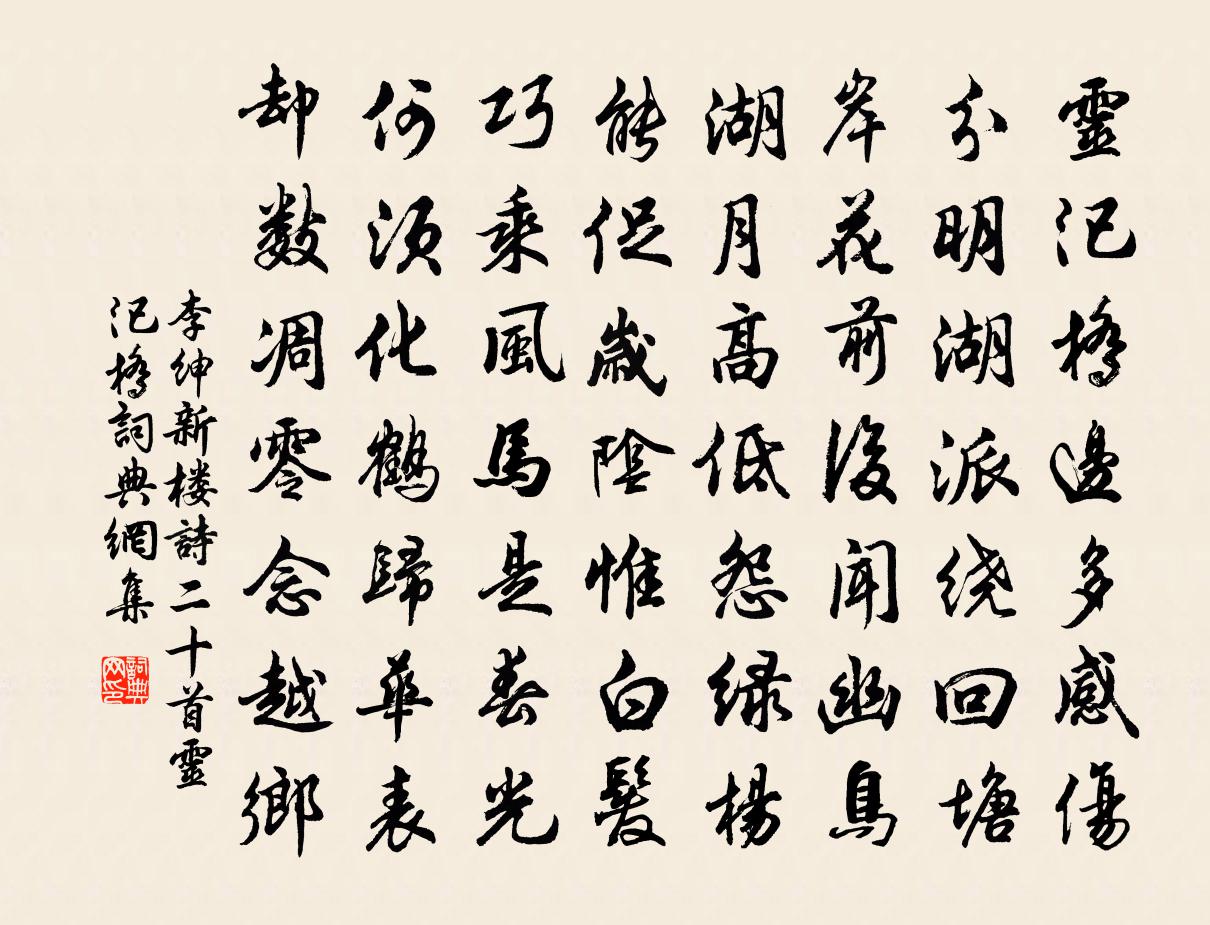 靈汜橋邊多感傷
分明湖派绕回塘
岸花前後闻幽鳥
湖月高低怨绿楊
能促歲陰惟白髮
巧乘風馬是春光
何須化鶴歸華表
却數凋零念越鄉
李紳新楼詩二十首靈
汜橋詞典網集
詞典
网印